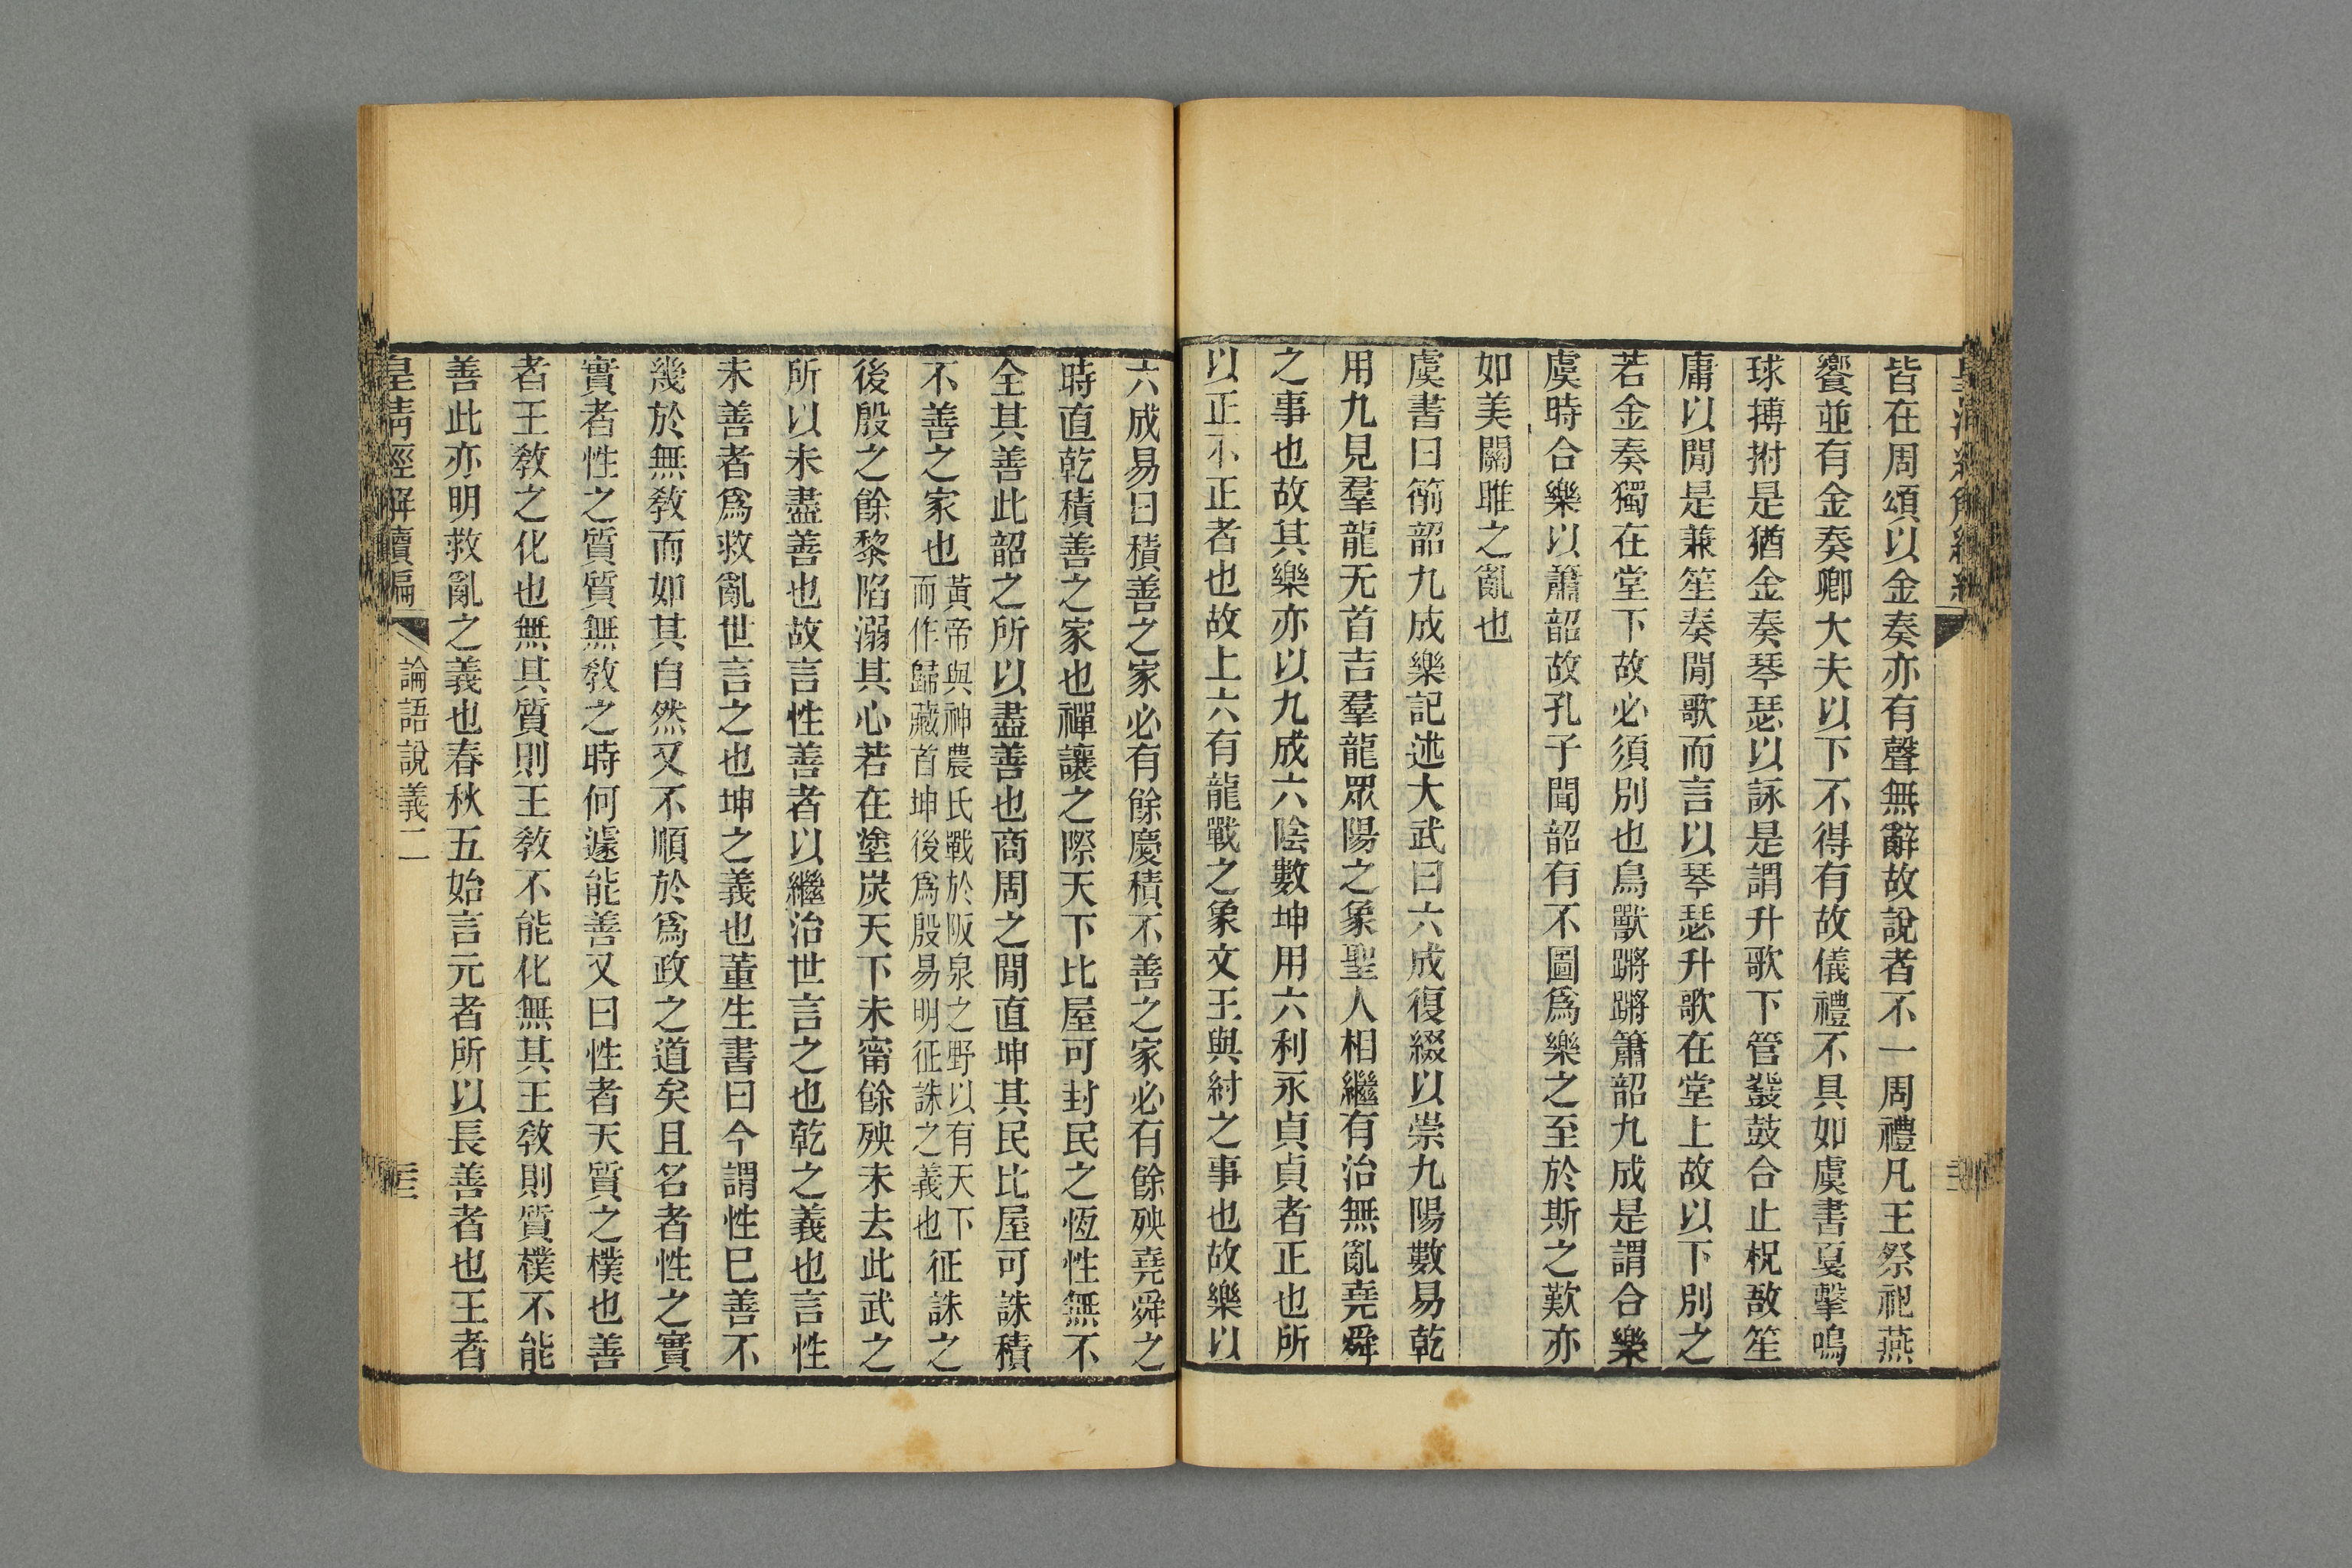 皆在周頌以金奏亦有聲無辭故說者不一周禮凡王祭祀燕
饗並有金奏卿大夫以下不得有故儀禮不具如虞書戛擊鳴
球搏拊是猶金奏琴瑟以詠是謂升歌下管鼗鼓合止柷敔笙
庸以閒是兼笙奏閒歌而言以琴瑟升歌在堂上故以下別之
若金奏獨在堂下故必須別也鳥獸蹡蹡簫韶九成是謂合樂
虞時合樂以簫韶故孔子聞韶有不圖爲樂之至於斯之歎亦
如美關雎之亂也
虞書曰箾韶九成樂記述大武曰六成復綴以崇九陽數易乾
用九見羣龍无首吉羣龍眾陽之象聖人相繼有治無亂堯舜
之事也故其樂亦以九成六陰數坤用六利永貞貞者正也所
以正不正者也故上六有龍戰之象文王與紂之事也故樂以
六成易曰積善之家必有餘慶積不善之家必有餘殃堯舜之
時直乾積善之家也禪讓之際天下比屋可封民之恆性無不
全其善此韶之所以盡善也商周之閒直坤其民比屋可誅積
不善之家也黃帝與神農氏戰於阪泉之野以有天下而作歸藏首坤後爲殷易明征誅之義也征誅之
後殷之餘黎陷溺其心若在塗炭天下未甯餘殃未去此武之
所以未盡善也故言性善者以繼治世言之也乾之義也言性
未善者爲救亂世言之也坤之義也董生書曰今謂性巳善不
幾於無敎而如其自然又不順於爲政之道矣且名者性之實
實者性之質質無敎之時何遽能善又曰性者天質之樸也善
者王敎之化也無其質則王敎不能化無其王敎則質樸不能
善此亦明救亂之義也春秋五始言元者所以長善者也王者
皇清經解續編
論語說義二